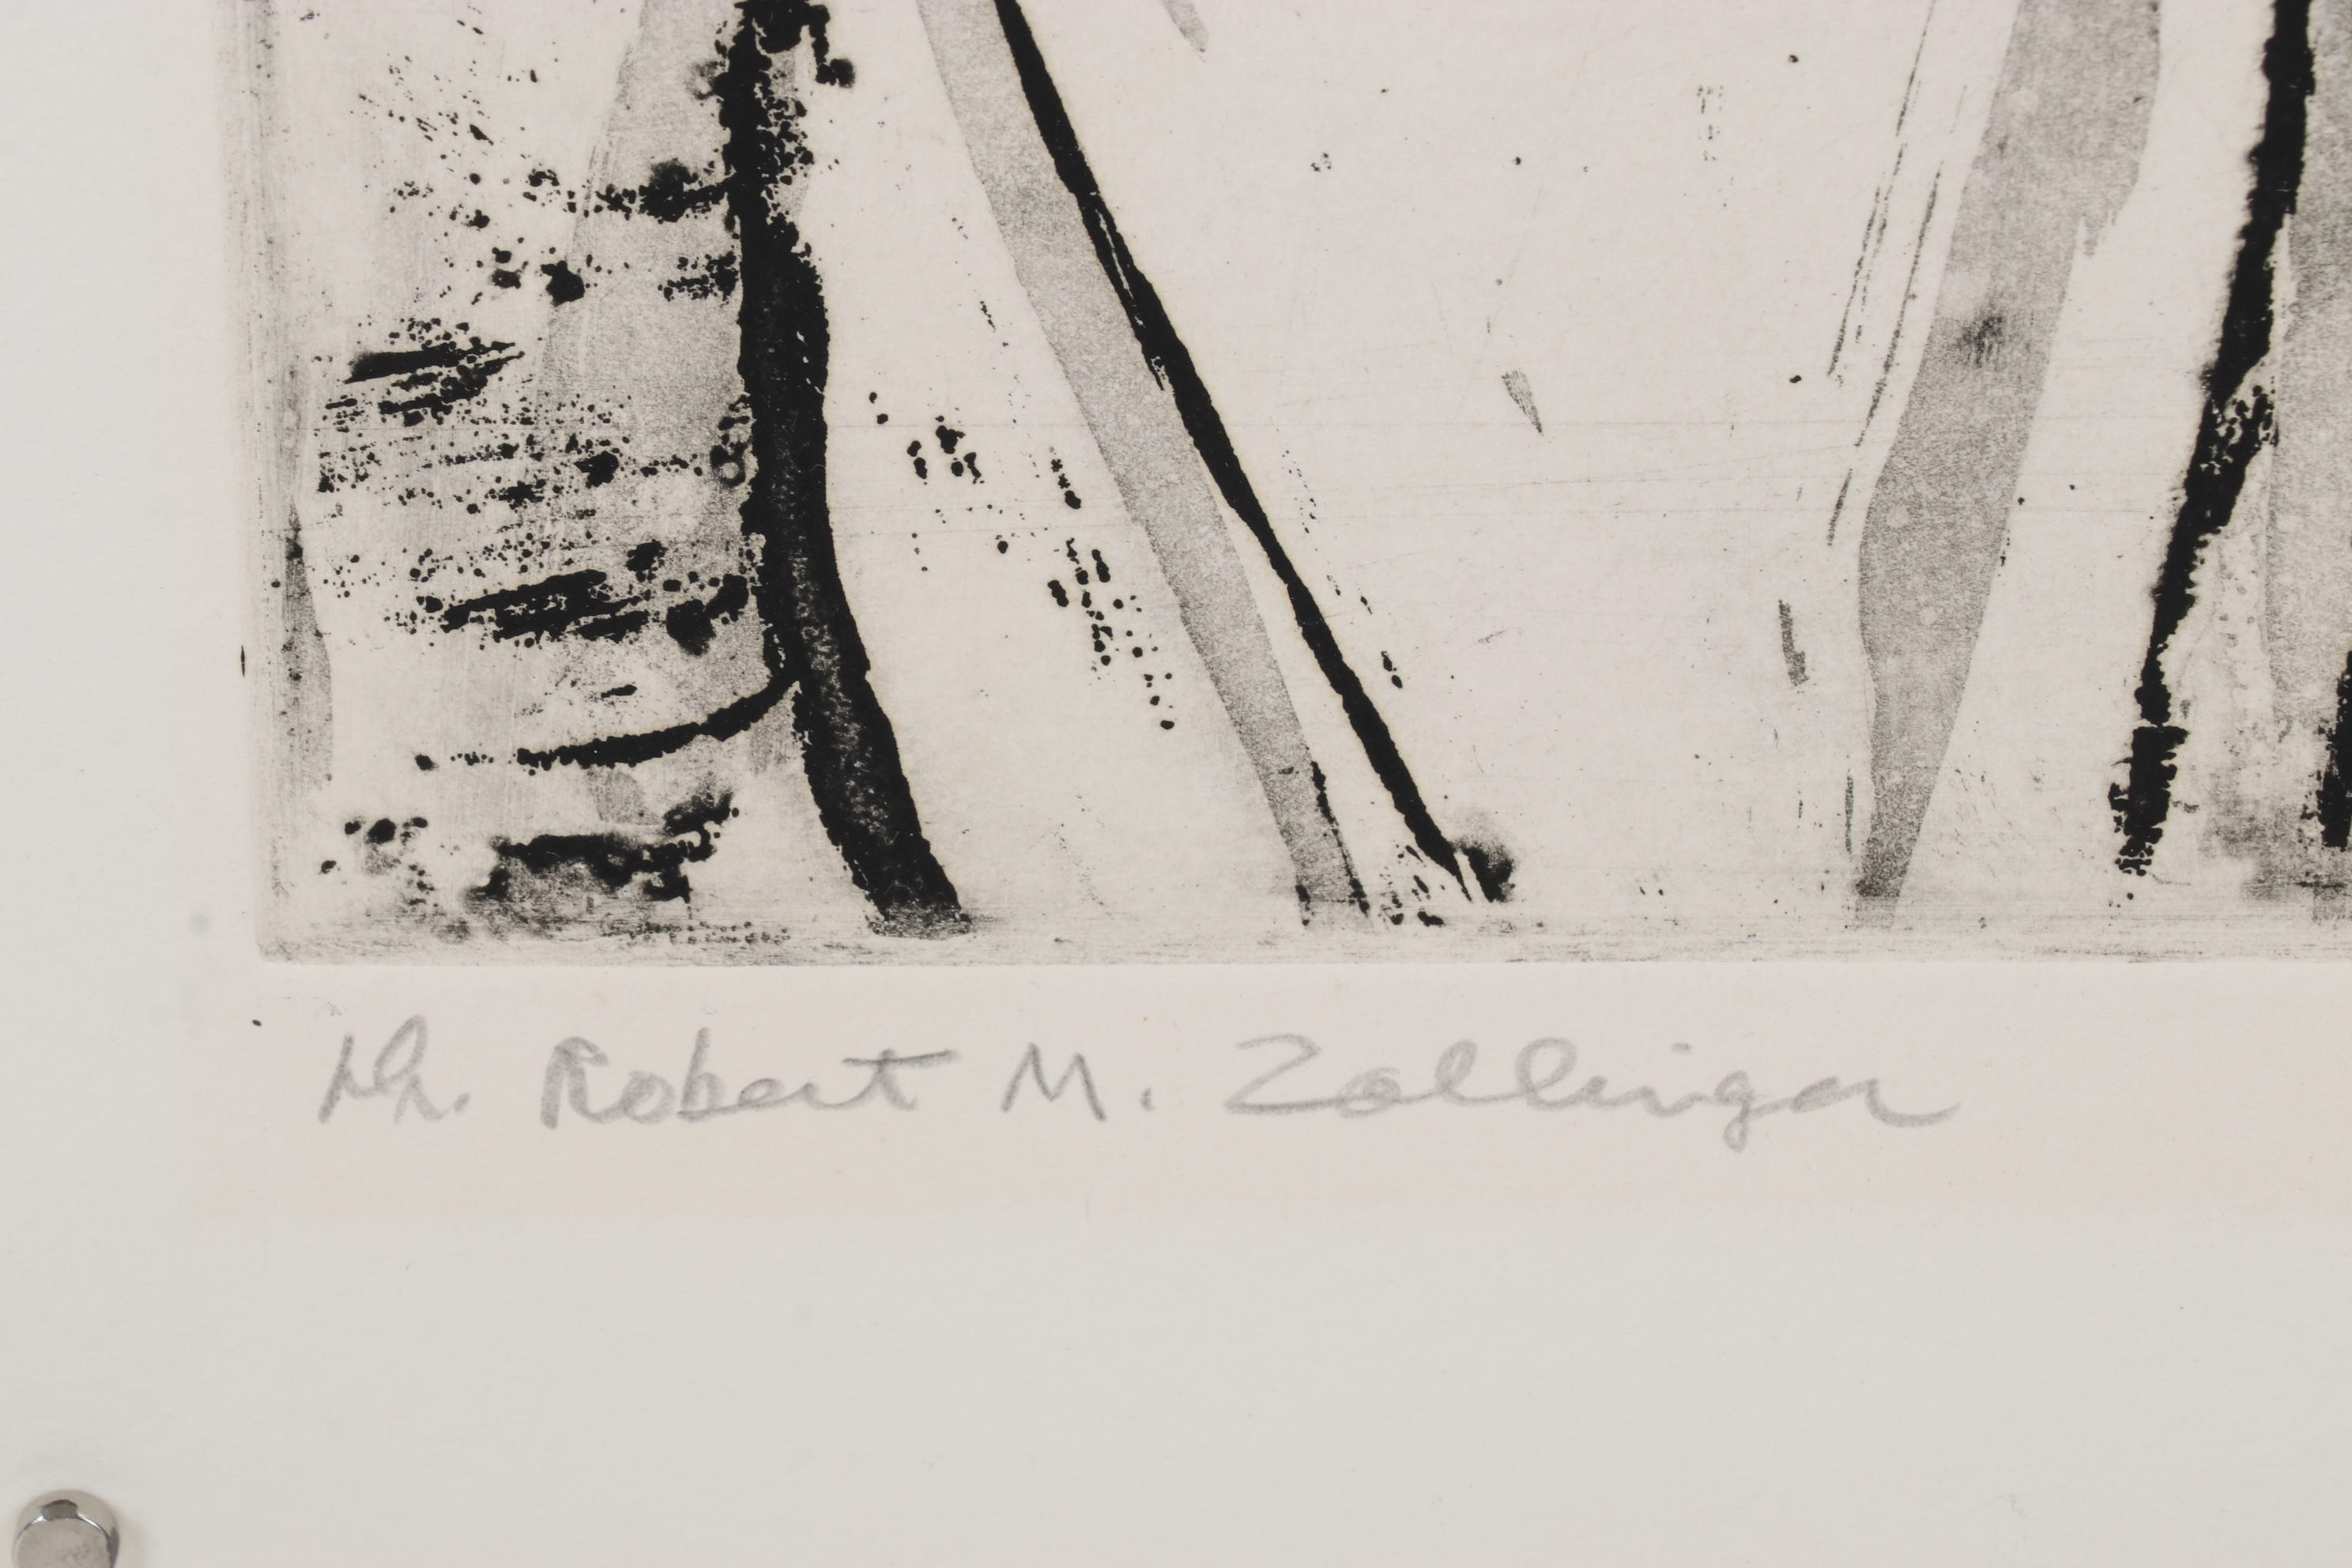 Dr. Robert M. Zollinger